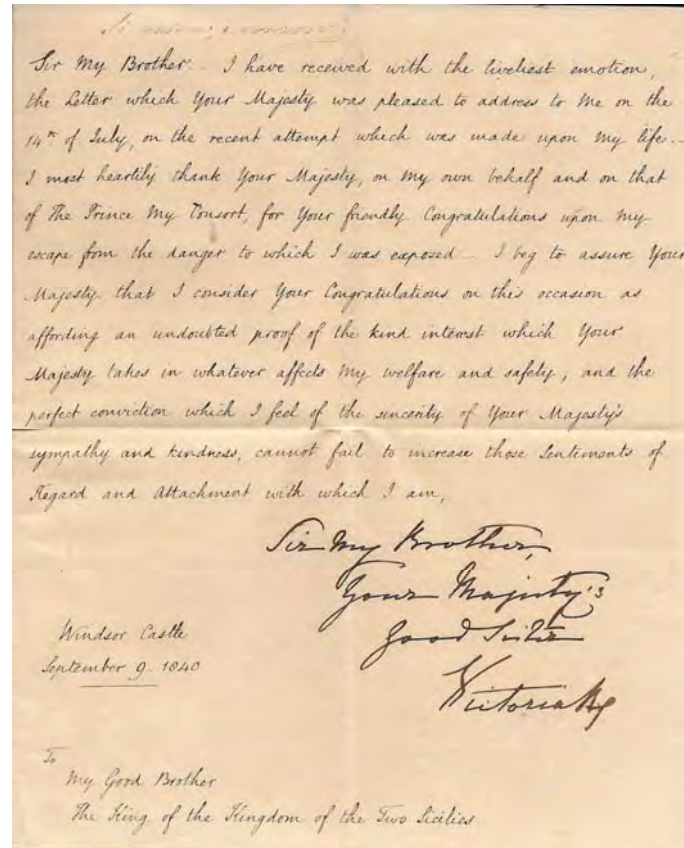 Sir My Brother. I have received with the liveliest emotion,
the Letter which Your Majesty was pleased to address to Me on the
14th of July, on the recent attempt which was made upon My life.
I most heartily thank Your Majesty, on My own behalf and on that
of The Prince My Consort, for Your friendly Congratulations upon my
escape from the danger to which I was exposed – I beg to assure Your
Majesty that I consider Your Congratulations on this occasion as
affording an undoubted proof of the kind interest which Your
Majesty takes in whatever affects My welfare and safety; and the
perfect conviction which I feel of the sincerity of Your Majesty's
sympathy and kindness, cannot fail to increase those Sentiments of
Regard and Attachment with which I am,
Sir My Brother,
Your Majesty's
Good Sister
Victoria R
Windsor Castle
September 9. 1840
To
My Good Brother
The King of the Kingdom of the Two Sicilies